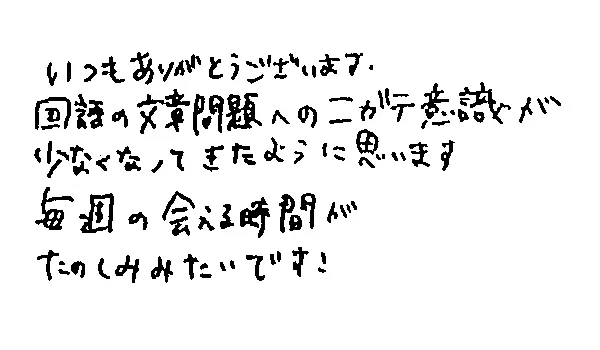 いつもありがとうございます.
国語の文章問題へのニガテ意識が
少なくなってきたように思います
毎週の会える時間が
たのしみみたいです!